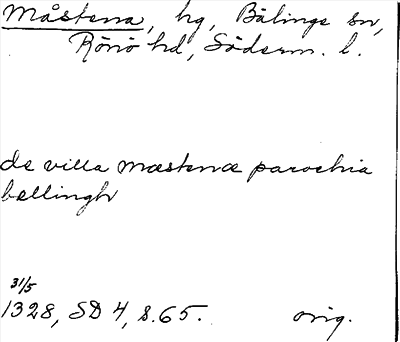 Måstena, hg, Bälinge sn,
Rönö hd, Söderm. l.
de villa mæstenæ parochia
bællingh
31/5
1328, SD 4, s. 65. orig.